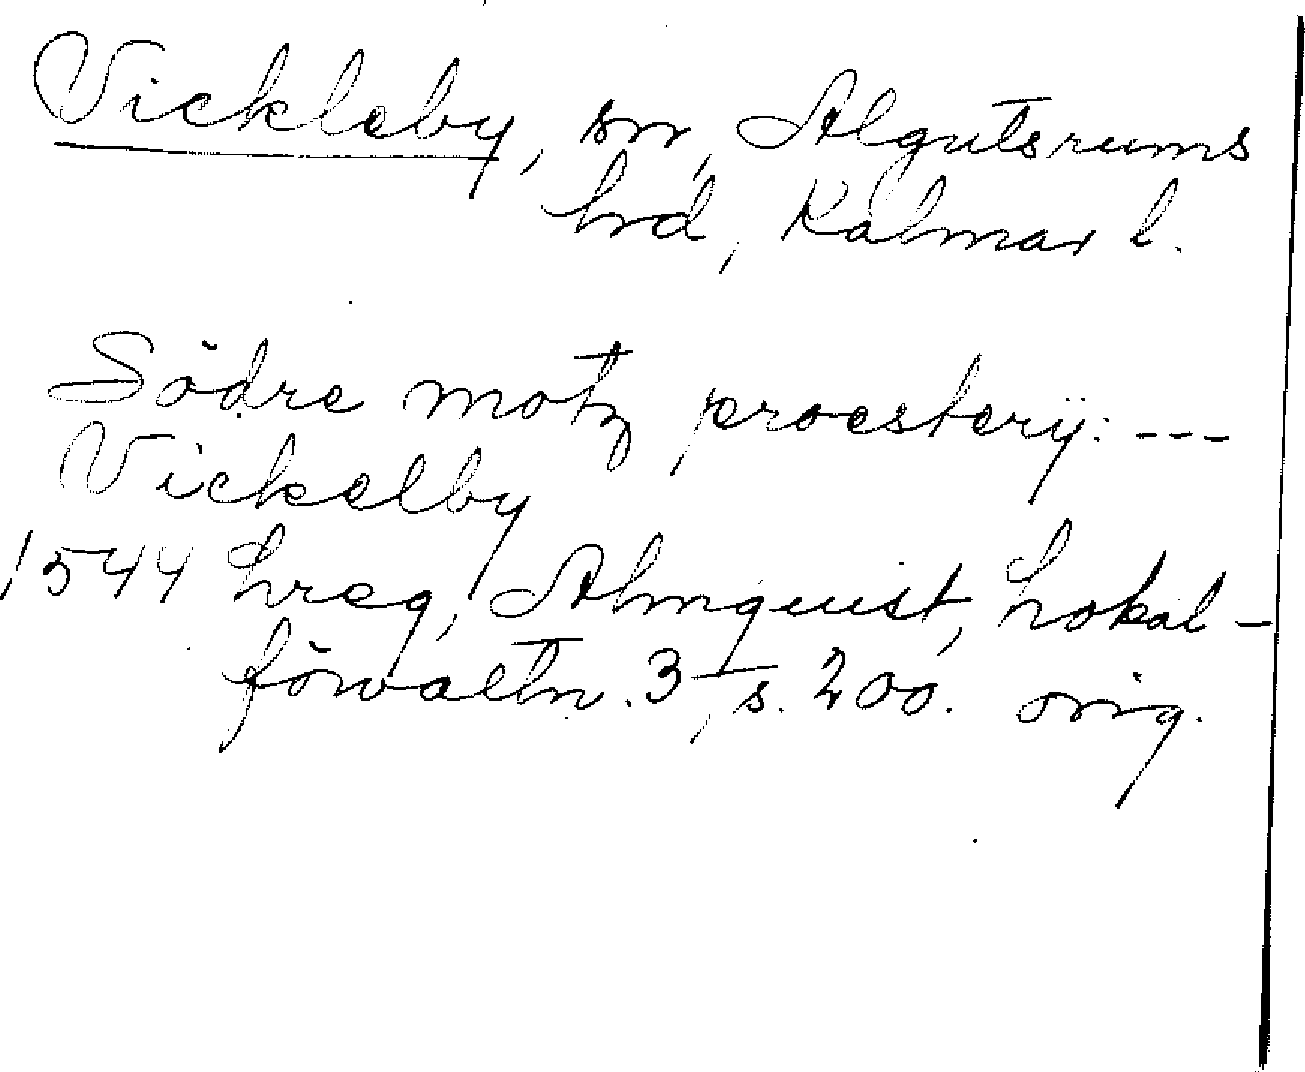 Vickleby, sn, Algutsrums
hrd, Kalmar l.
Södre motz proesterÿ: ---
Vickelby
1544 hreg, Almquist, Lokal-
förvaltn. 3, s. 200. orig.